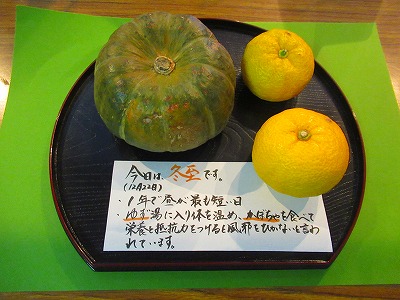 今日は、冬至です。
(12月22日)
・1年で昼が最も短い日
・ゆず湯に入り体を温め、かぼちゃを食べて
栄養と抵抗力をつけると風邪をひかないと言わ
れています。